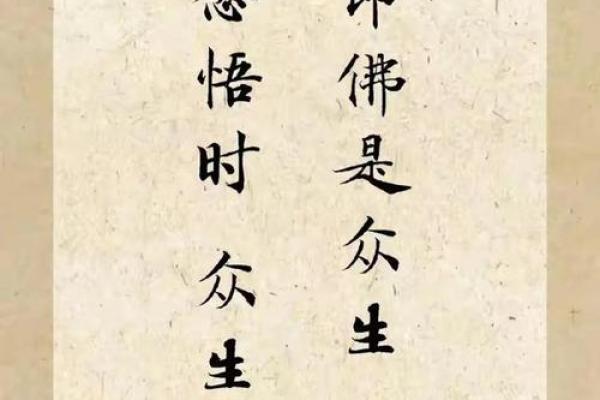 佛是众生
悟时 众生